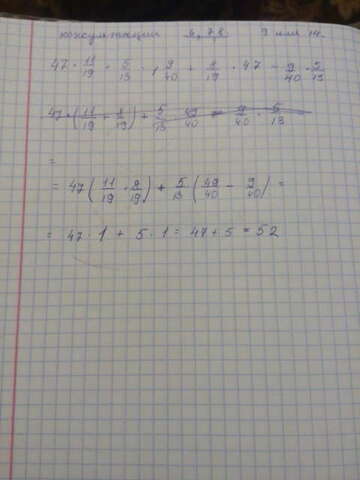 консультации 6,7,8 9 или 14.
47 · 11/19 + 5/13 · 1 9/40 + 8/19 · 47 - 9/40 · 5/13
47 · (11/19 + 8/19) + 5/13 · 49/40 - 9/40 · 5/13 =
=
= 47 (11/19 · 8/19) + 5/13 (49/40 - 9/40) =
= 47 · 1 + 5 · 1 = 47 + 5 = 52